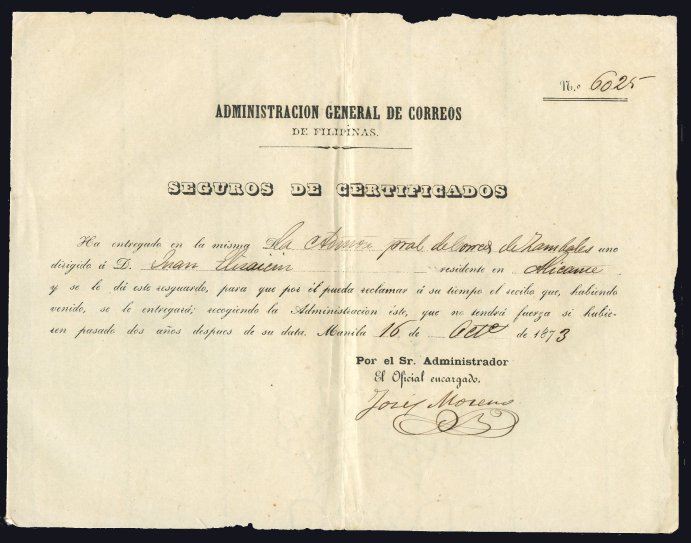 N.º 6025
ADMINISTRACION GENERAL DE CORREOS
DE FILIPINAS.
SEGUROS DE CERTIFICADOS
Ha entregado en la misma D. La Admon pral de Correos de Zambales uno
dirigido á D. Juan residente en Alicante
y se le dá este resguardo, para que por él pueda reclamar á su tiempo el recibo que, habiendo
venido, se le entregará; recogiendo la Administracion éste, que no tendrá fuerza si hubie-
ren pasado dos años despues de su data. Manila 16 de Octe de 1873
Por el Sr. Administrador
El Oficial encargado.
José Moreno